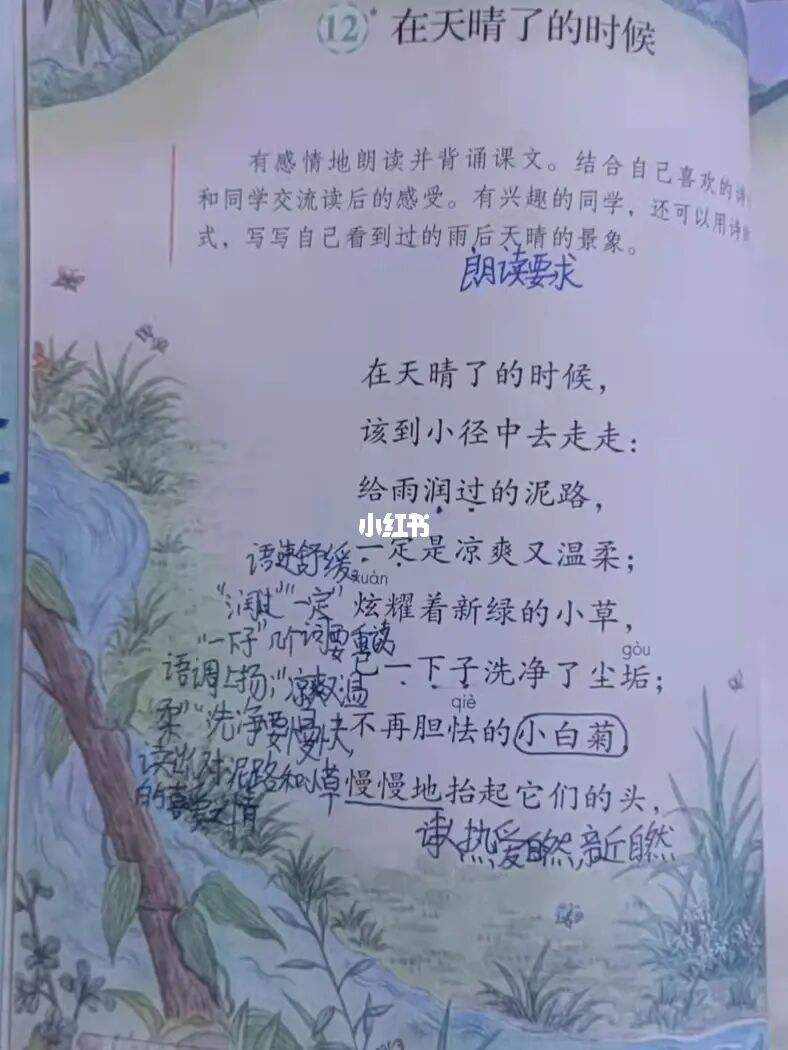 12* 在天晴了的时候
有感情地朗读并背诵课文。结合自己喜欢的诗
和同学交流读后的感受。有兴趣的同学，还可以用诗
式，写写自己看到过的雨后天晴的景象。
朗读要求
在天晴了的时候，
该到小径中去走走：
给雨润过的泥路，
小红书
一定是凉爽又温柔；
xuàn
炫耀着新绿的小草，
gòu
已一下子洗净了尘垢；
qiè
不再胆怯的小白菊，
慢慢地抬起它们的头，
语速舒缓
"润过""一定"
"一下子"几个词要重读
语调上扬，"凉爽又温
柔""洗净要慢快，
读出对泥路和小草
的喜爱之情
诗人热爱自然，亲近自然